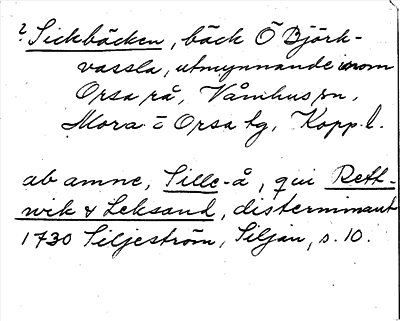 ? Sickbäcken, bäck Ö Björk-
vassla, utmynnande inom
Orsa rå, Våmhus sn,
Mora o Orsa tg, Kopp. l.
ab amne, Sille-å, qui Rett-
wik & Leksand, disterminant
1730 Siljeström, Siljan, s. 10.